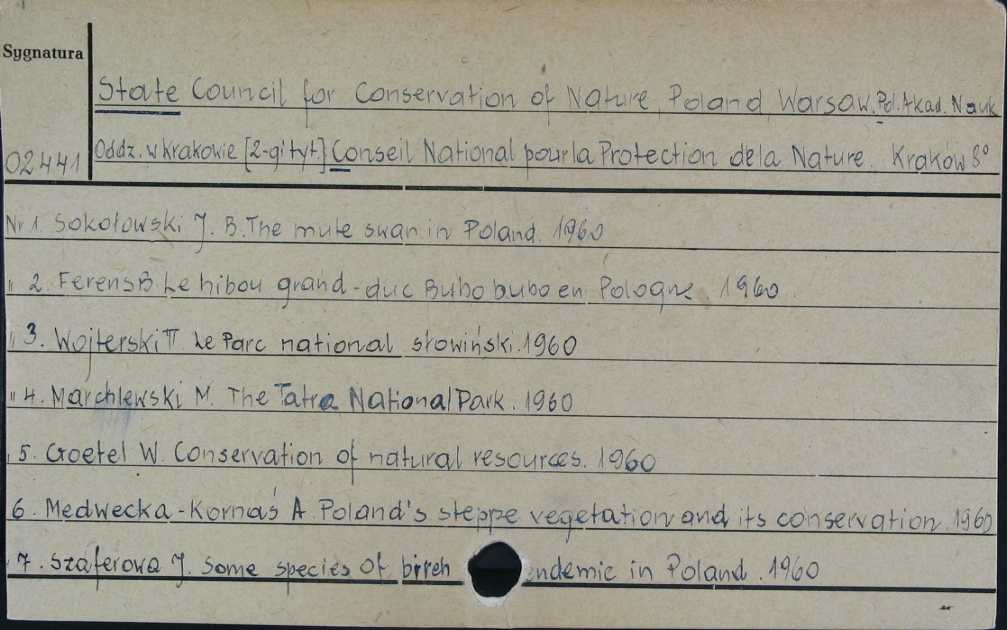 Sygnatura
State Council for Conservation of Nature, Poland Warsaw. Pol. Akad. Nauk
02441 Oddz. w Krakowie [2-gi tyt.] Conseil National pour la Protection de la Nature. Kraków 8°
Nr 1. Sokołowski J. B. The mute swan in Poland. 1960
" 2. Ferens B Le hibou grand-duc Bubo bubo en Pologne 1960
" 3. Wojterski T. Le Parc national słowiński. 1960
" 4. Marchlewski M. The Tatra National Park. 1960
" 5. Goetel W. Conservation of natural resources. 1960
6. Medwecka-Kornaś A. Poland's steppe vegetation and its conservation. 1960
" 7. Szaferowa J. Some species of birch endemic in Poland. 1960